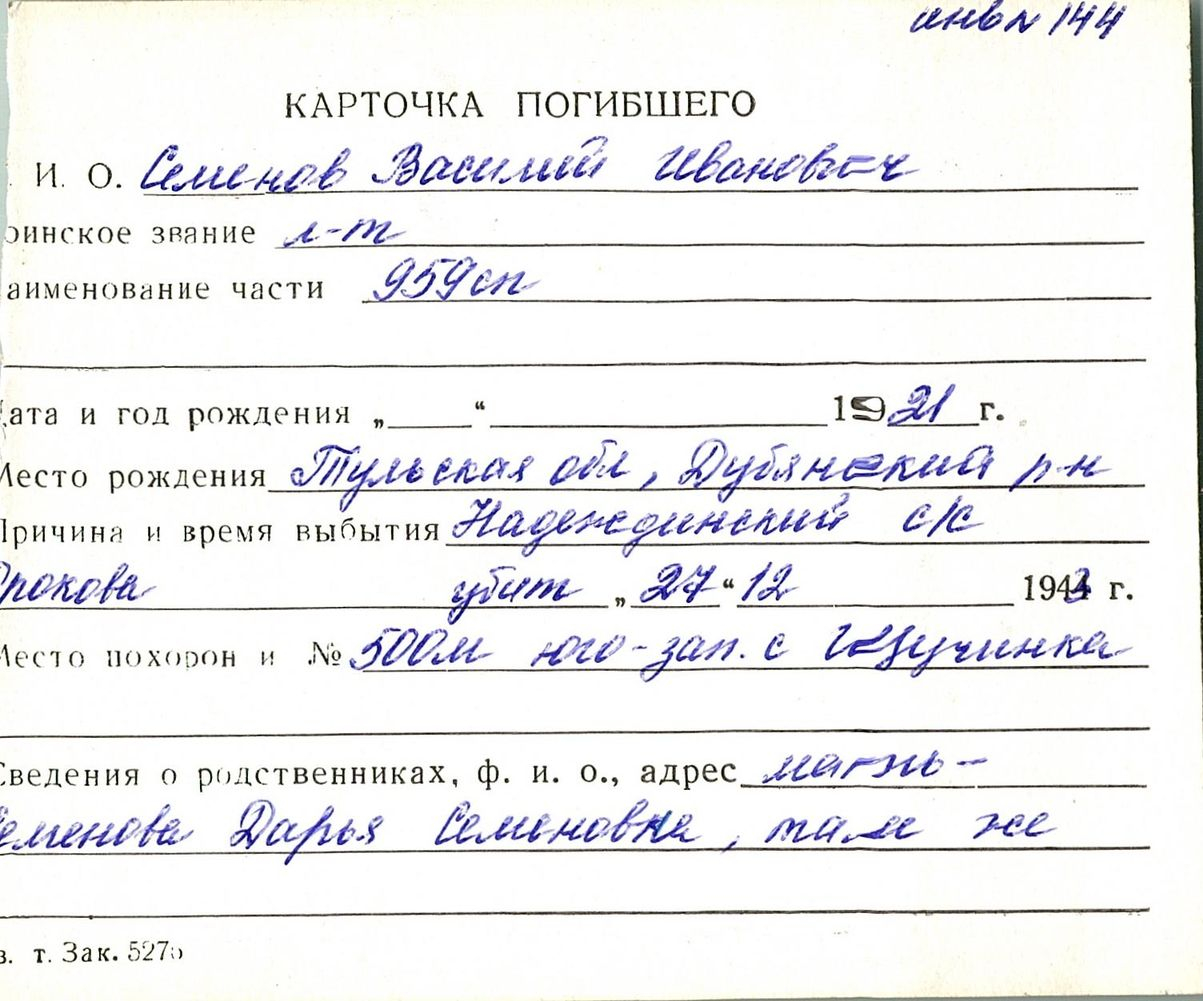 инв № 144
КАРТОЧКА ПОГИБШЕГО
И. О. Семенов Василий Иванович
оинское звание л-т
аименование части 959сп
ата и год рождения „ “ 1921 г.
Место рождения Тульская обл, Дубянский р-н
Причина и время выбытия Надеждинский с/с
убит „27“ 12 1943 г.
Место похорон и № 500м юго-зап. с Щучинка
Сведения о родственниках, ф. и. о., адрес мать-
Семенова Дарья Семеновна, там же
в. т. Зак. 5275